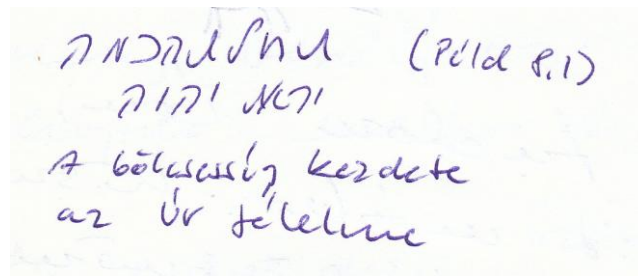 תחלת חכמה (Péld 8,1)
יראת יהוה
A bölcsesség kezdete
az Úr félelme